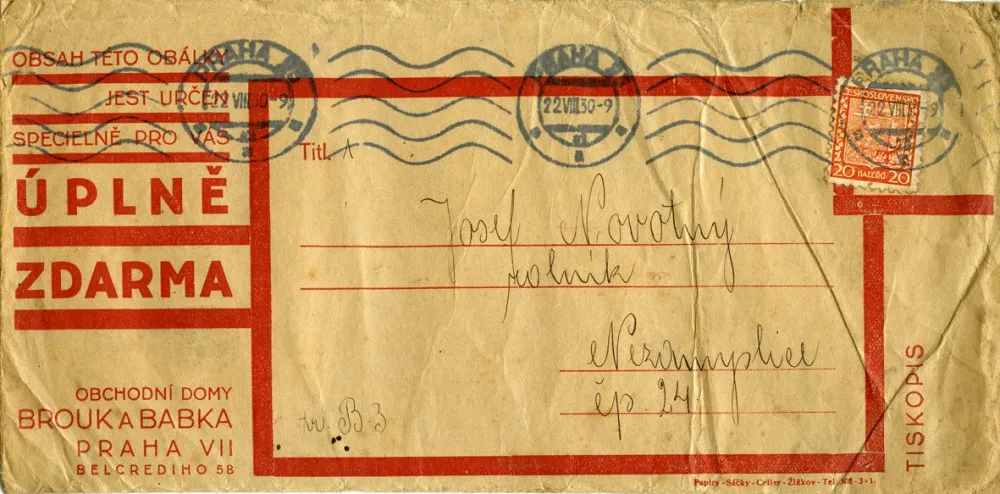 OBSAH TÉTO OBÁLKY
JEST URČEN
SPECIELNĚ PRO VÁS
ÚPLNĚ
ZDARMA
OBCHODNÍ DOMY
BROUK A BABKA
PRAHA VII
BELCREDIHO 58
PRAHA 25
22 VIII 30-9
PRAHA 25
22 VIII 30-9
PRAHA 25
22 VIII
ČESKOSLOVENSKO
20 HALÉŘŮ 20
Titl.
Josef Novotný
rolník
Nezamyslice
čp. 24.
B-3
TISKOPIS
Papíry - Sáčky - Celler - Žižkov - Tel.